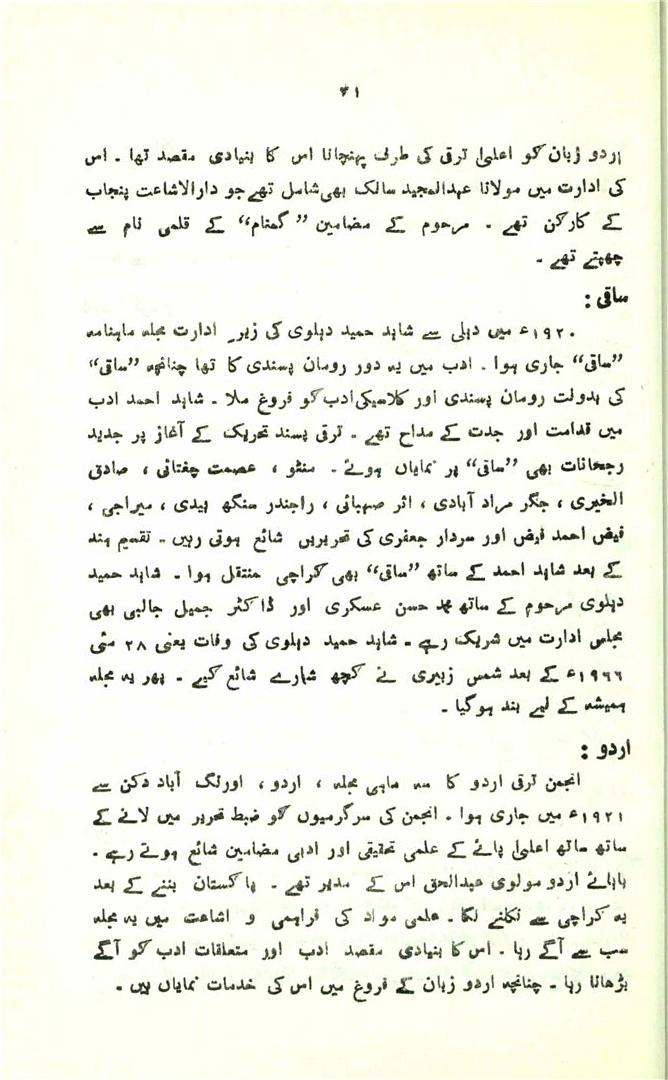 ۴۱
اردو زبان کو اعلیٰ ترقی کی طرف پہنچانا اس کا بنیادی مقصد تھا ۔ اس
کی ادارت میں مولانا عبدالمجید سالک بھی شامل تھے جو دارالاشاعت پنجاب
کے کارکن تھے ۔ مرحوم کے مضامین ”گمنام“ کے قلمی نام سے
چھپتے تھے ۔
ساقی :
۱۹۲۰ء میں دہلی سے شاہد حمید دہلوی کی زیر ادارت مجلہ ماہنامہ
”ساقی“ جاری ہوا ۔ ادب میں یہ دور رومان پسندی کا تھا چنانچہ ”ساقی“
کی بدولت رومان پسندی اور کلاسیکی ادب کو فروغ ملا ۔ شاہد احمد ادب
میں قدامت اور جدت کے مداح تھے ۔ ترقی پسند تحریک کے آغاز پر جدید
رجحانات بھی ”ساقی“ پر نمایاں ہوئے ۔ منٹو ، عصمت چغتائی ، صادق
الخیری ، جگر مراد آبادی ، اثر صہبائی ، راجندر سنگھ بیدی ، میراجی ،
فیض احمد فیض اور سردار جعفری کی تحریریں شائع ہوتی رہیں ۔ تقسیم ہند
کے بعد شاہد احمد کے ساتھ ”ساقی“ بھی کراچی منتقل ہوا ۔ شاہد حمید
دہلوی مرحوم کے ساتھ محمد حسن عسکری اور ڈاکٹر جمیل جالبی بھی
مجلس ادارت میں شریک رہے ۔ شاہد حمید دہلوی کی وفات یعنی ۲۸ مئی
۱۹۶۶ء کے بعد شمس زبیری نے کچھ شمارے شائع کیے ۔ پھر یہ مجلہ
ہمیشہ کے لیے بند ہوگیا ۔
اردو :
انجمن ترقی اردو کا سہ ماہی مجلہ ، اردو ، اورنگ آباد دکن سے
۱۹۲۱ء میں جاری ہوا ۔ انجمن کی سرگرمیوں کو ضبط تحریر میں لانے کے
ساتھ ساتھ اعلیٰ پائے کے علمی تحقیقی اور ادبی مضامین شائع ہوتے رہے ۔
بابائے اردو مولوی عبدالحق اس کے مدیر تھے ۔ پاکستان بننے کے بعد
یہ کراچی سے نکلنے لگا ۔ علمی مواد کی فراہمی و اشاعت میں یہ مجلہ
سب سے آگے رہا ۔ اس کا بنیادی مقصد ادب اور متعلقات ادب کو آگے
بڑھانا رہا ۔ چنانچہ اردو زبان کے فروغ میں اس کی خدمات نمایاں ہیں ۔